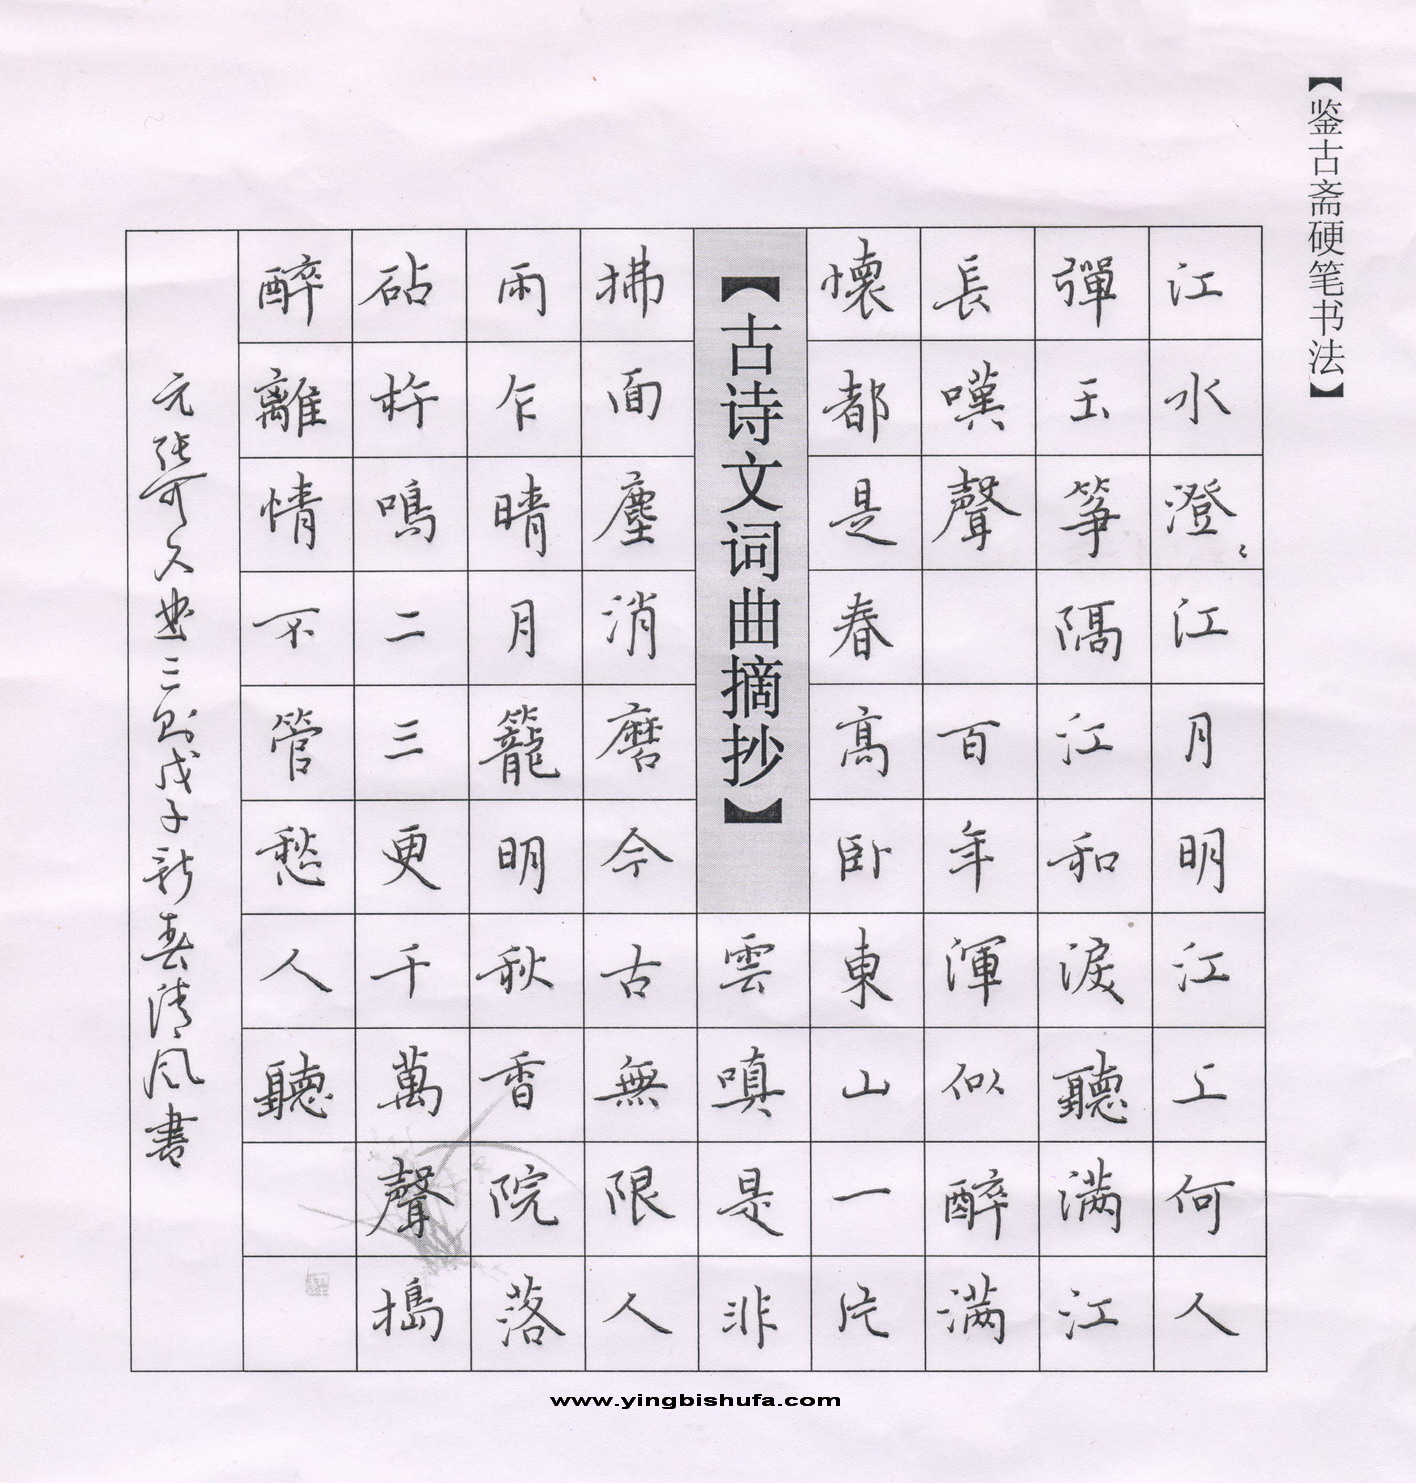 【鉴古斋硬笔书法】
江水澄〻江月明江上何人
彈玉箏隔江和淚聽滿江
長嘆聲 百年渾似醉滿
懷都是春高卧東山一片
【古诗文词曲摘抄】
雲嗔是非
拂面塵消磨今古無限人
雨乍晴月籠明秋香院落
砧杵鳴二三更千萬聲搗
醉離情不管愁人聽
元張可久曲三則戊子新春清風書
www.yingbishufa.com